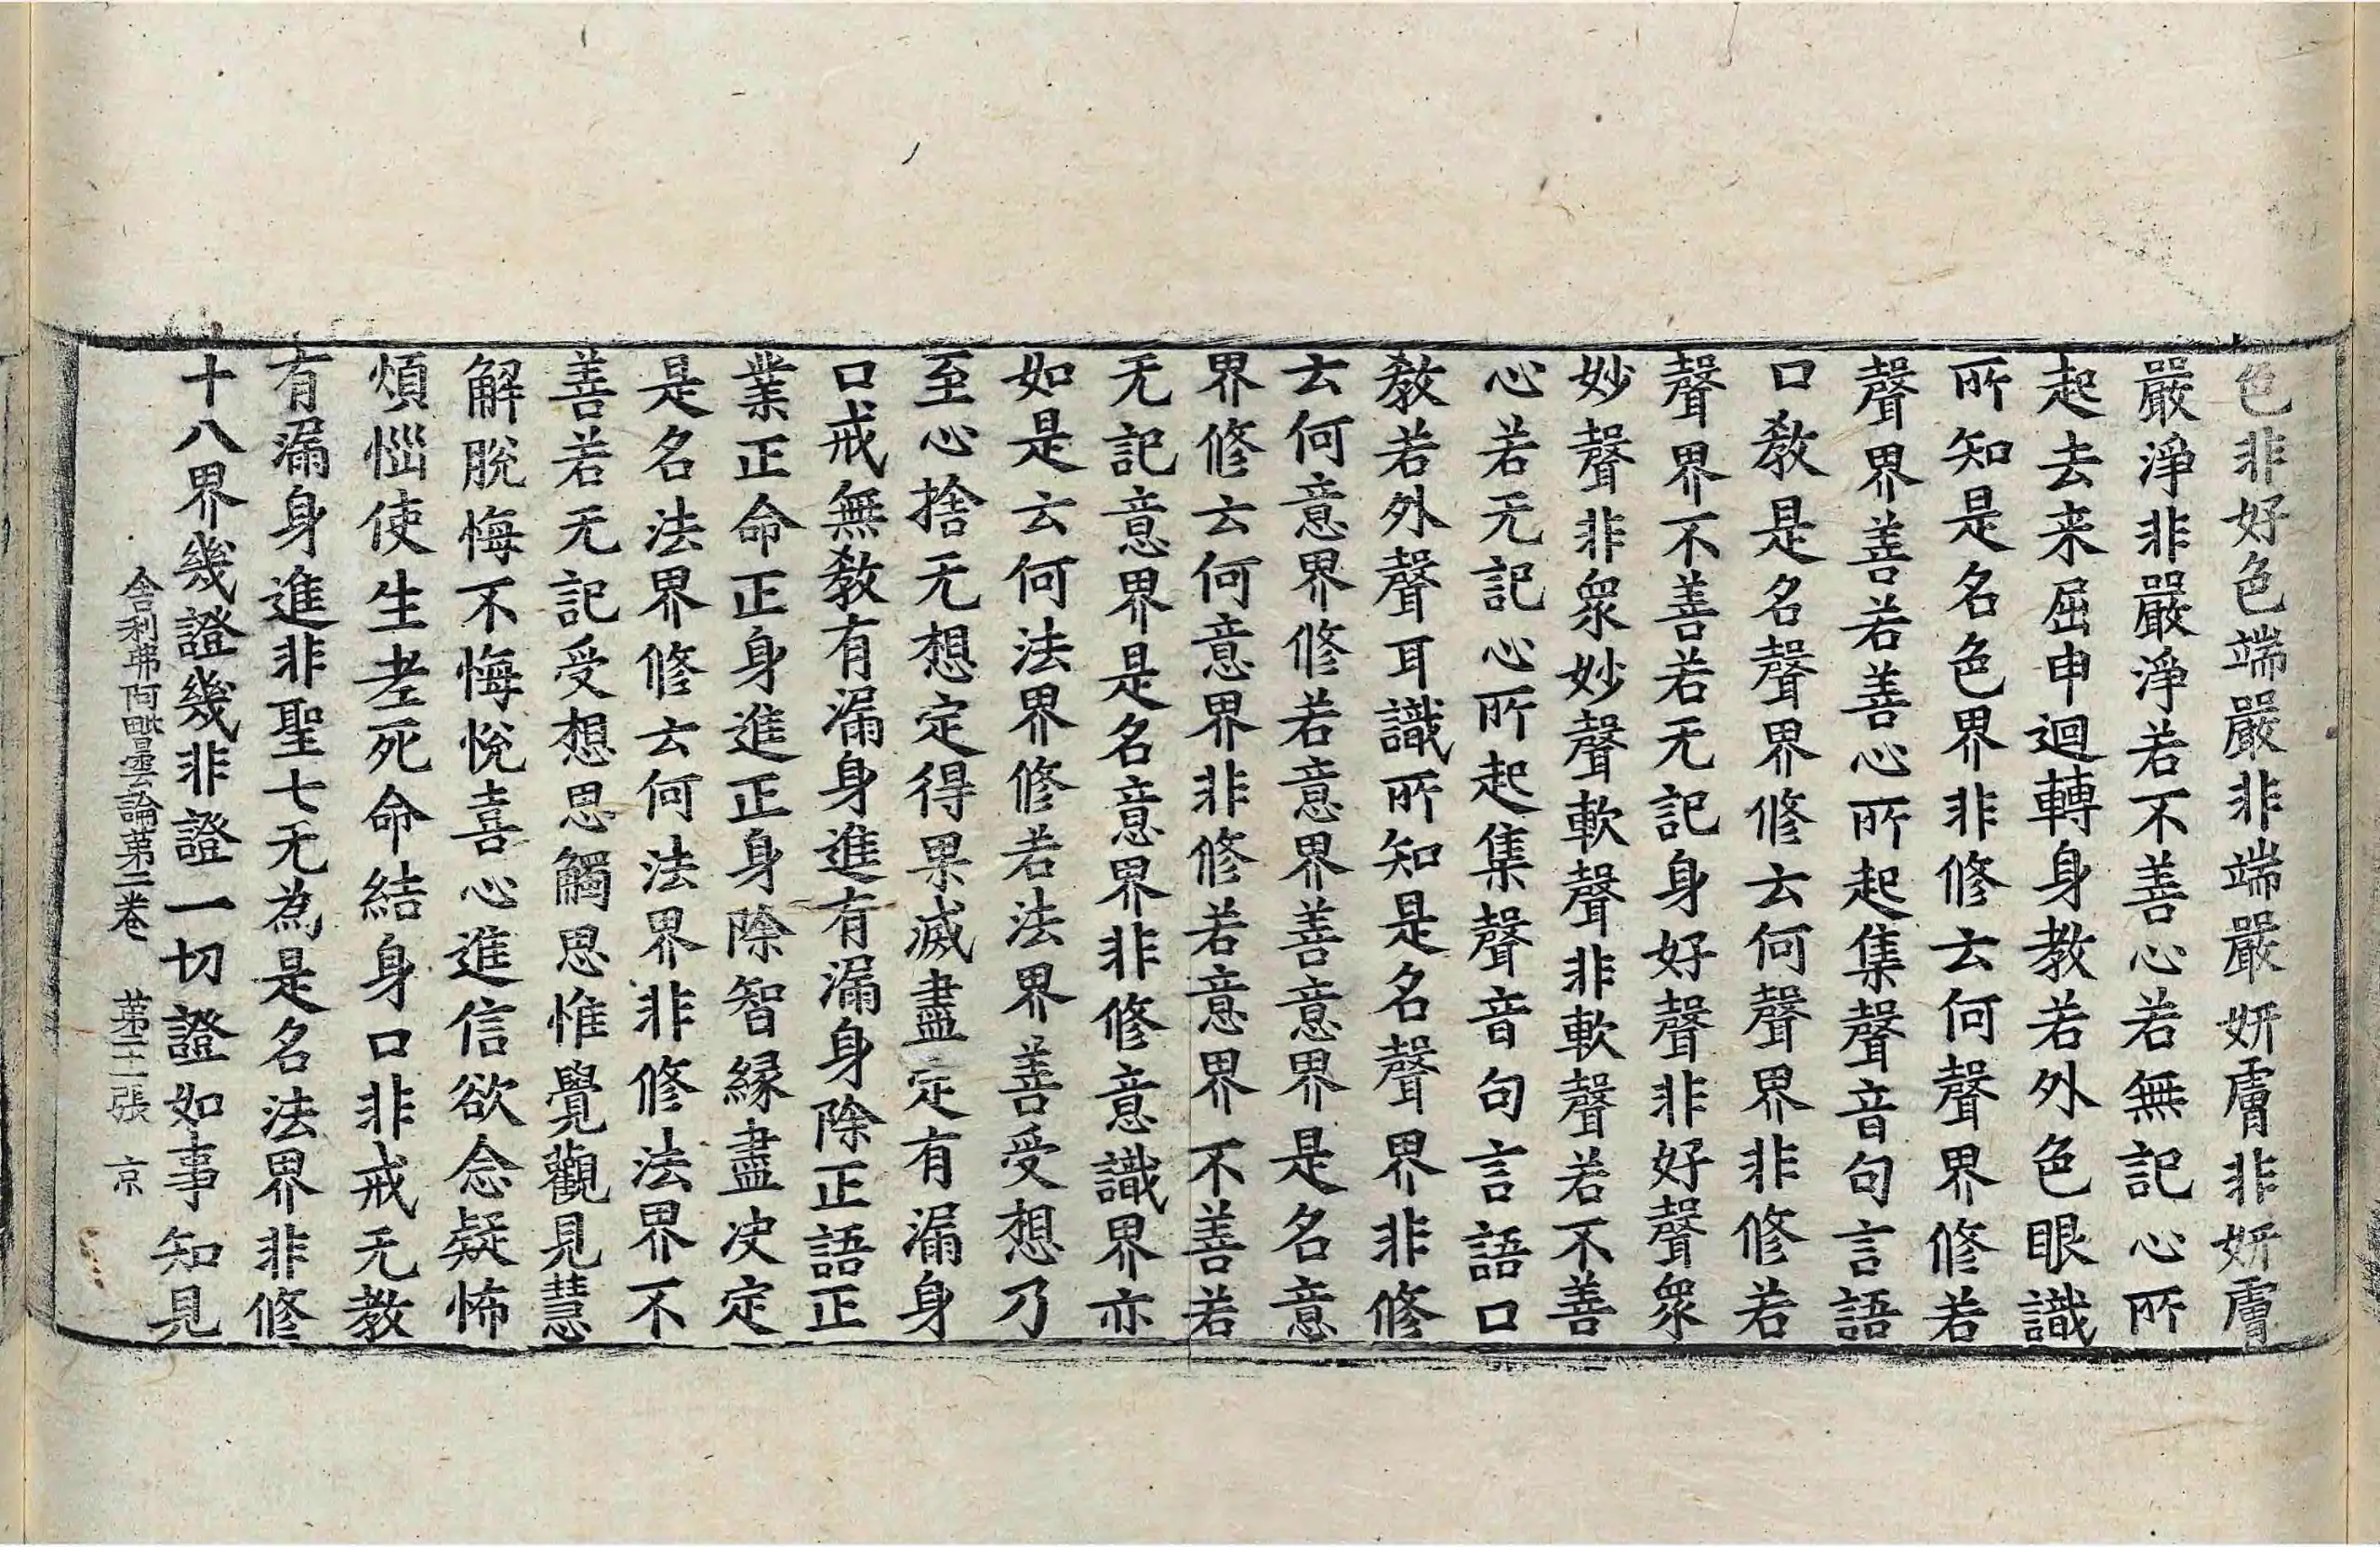 色非好色端嚴非端嚴妍膚非妍膚
嚴淨非嚴淨若不善心若無記心所
起去来屈申迴轉身教若外色眼識
所知是名色界非修云何聲界修若
聲界善若善心所起集聲音句言語
口教是名聲界修云何聲界非修若
聲界不善若无記身好聲非好聲衆
妙聲非衆妙聲軟聲非軟聲若不善
心若无記心所起集聲音句言語口
教若外聲耳識所知是名聲界非修
云何意界修若意界善意界是名意
界修云何意界非修若意界不善若
无記意界是名意界非修意識界亦
如是云何法界修若法界善受想乃
至心捨无想定得果滅盡定有漏身
口戒無教有漏身進有漏身除正語正
業正命正身進正身除智緣盡决定
是名法界修云何法界非修法界不
善若无記受想思觸思惟覺觀見慧
解脫悔不悔悅喜心進信欲念疑怖
煩惱使生老死命結身口非戒无教
有漏身進非聖七无為是名法界非修
十八界幾證幾非證一切證如事知見
舍利弗阿毗曇論第二卷 第三張 京